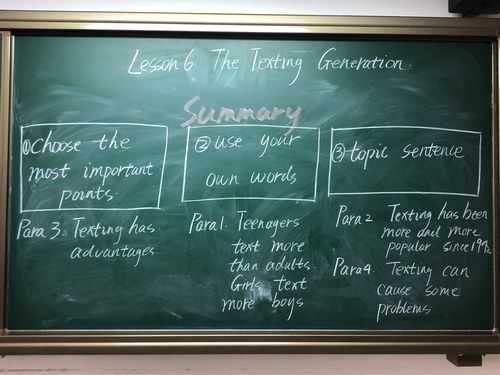 Lesson 6 The Texting Generation
Summary
① choose the
most important
points.
② use your
own words
③ topic sentence
Para 3: Texting has
advantages
Para 1. Teenagers
text more
than adults
Girls text
more boys
Para 2 Texting has been
more and more
popular since
Para 4. Texting can
cause some
problems